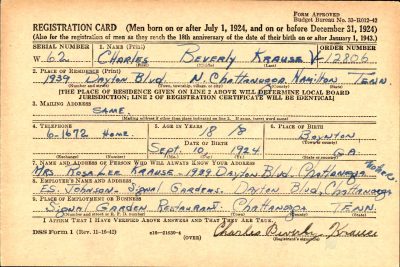 FORM APPROVED
Budget Bureau No. 33-R012-42
REGISTRATION CARD (Men born on or after July 1, 1924, and on or before December 31, 1924)
(Also for the registration of men as they reach the 18th anniversary of the date of their birth on or after January 1, 1943.)
SERIAL NUMBER 1. NAME (Print) ORDER NUMBER
W 62 CHARLES BEVERLY KRAUSE 12806
(First) (Middle) (Last)
2. PLACE OF RESIDENCE (Print)
1939 DAYTON BLVD N. CHATTANOOGA HAMILTON TENN
(Number and street) (Town, township, village, or city) (County) (State)
[THE PLACE OF RESIDENCE GIVEN ON LINE 2 ABOVE WILL DETERMINE LOCAL BOARD
JURISDICTION; LINE 2 OF REGISTRATION CERTIFICATE WILL BE IDENTICAL]
3. MAILING ADDRESS
SAME.
[Mailing address if other than place indicated on line 2. If same, insert word same]
4. TELEPHONE 5. AGE IN YEARS 18 6. PLACE OF BIRTH
6-1672 HOME. BOYNTON
DATE OF BIRTH
SEPT. 10, 1924 GA.
(Exchange) (Number) (Mo.) (Day) (Yr.) (State or country)
7. NAME AND ADDRESS OF PERSON WHO WILL ALWAYS KNOW YOUR ADDRESS
MRS. ROSA LEE KRAUSE - 1939 DAYTON BLVD. CHATTANOOGA
8. EMPLOYER'S NAME AND ADDRESS
E.S. JOHNSON - SIGNAL GARDENS. DAYTON BLVD, CHATTANOOGA
9. PLACE OF EMPLOYMENT OR BUSINESS
SIGNAL GARDEN RESTAURANT. CHATTANOOGA TENN.
(Number and street or R. F. D. number) (Town) (County) (State)
I AFFIRM THAT I HAVE VERIFIED ABOVE ANSWERS AND THAT THEY ARE TRUE.
DSS Form 1 (Rev. 11-16-42) (OVER) Charles Beverly Krause
(Registrant's signature)